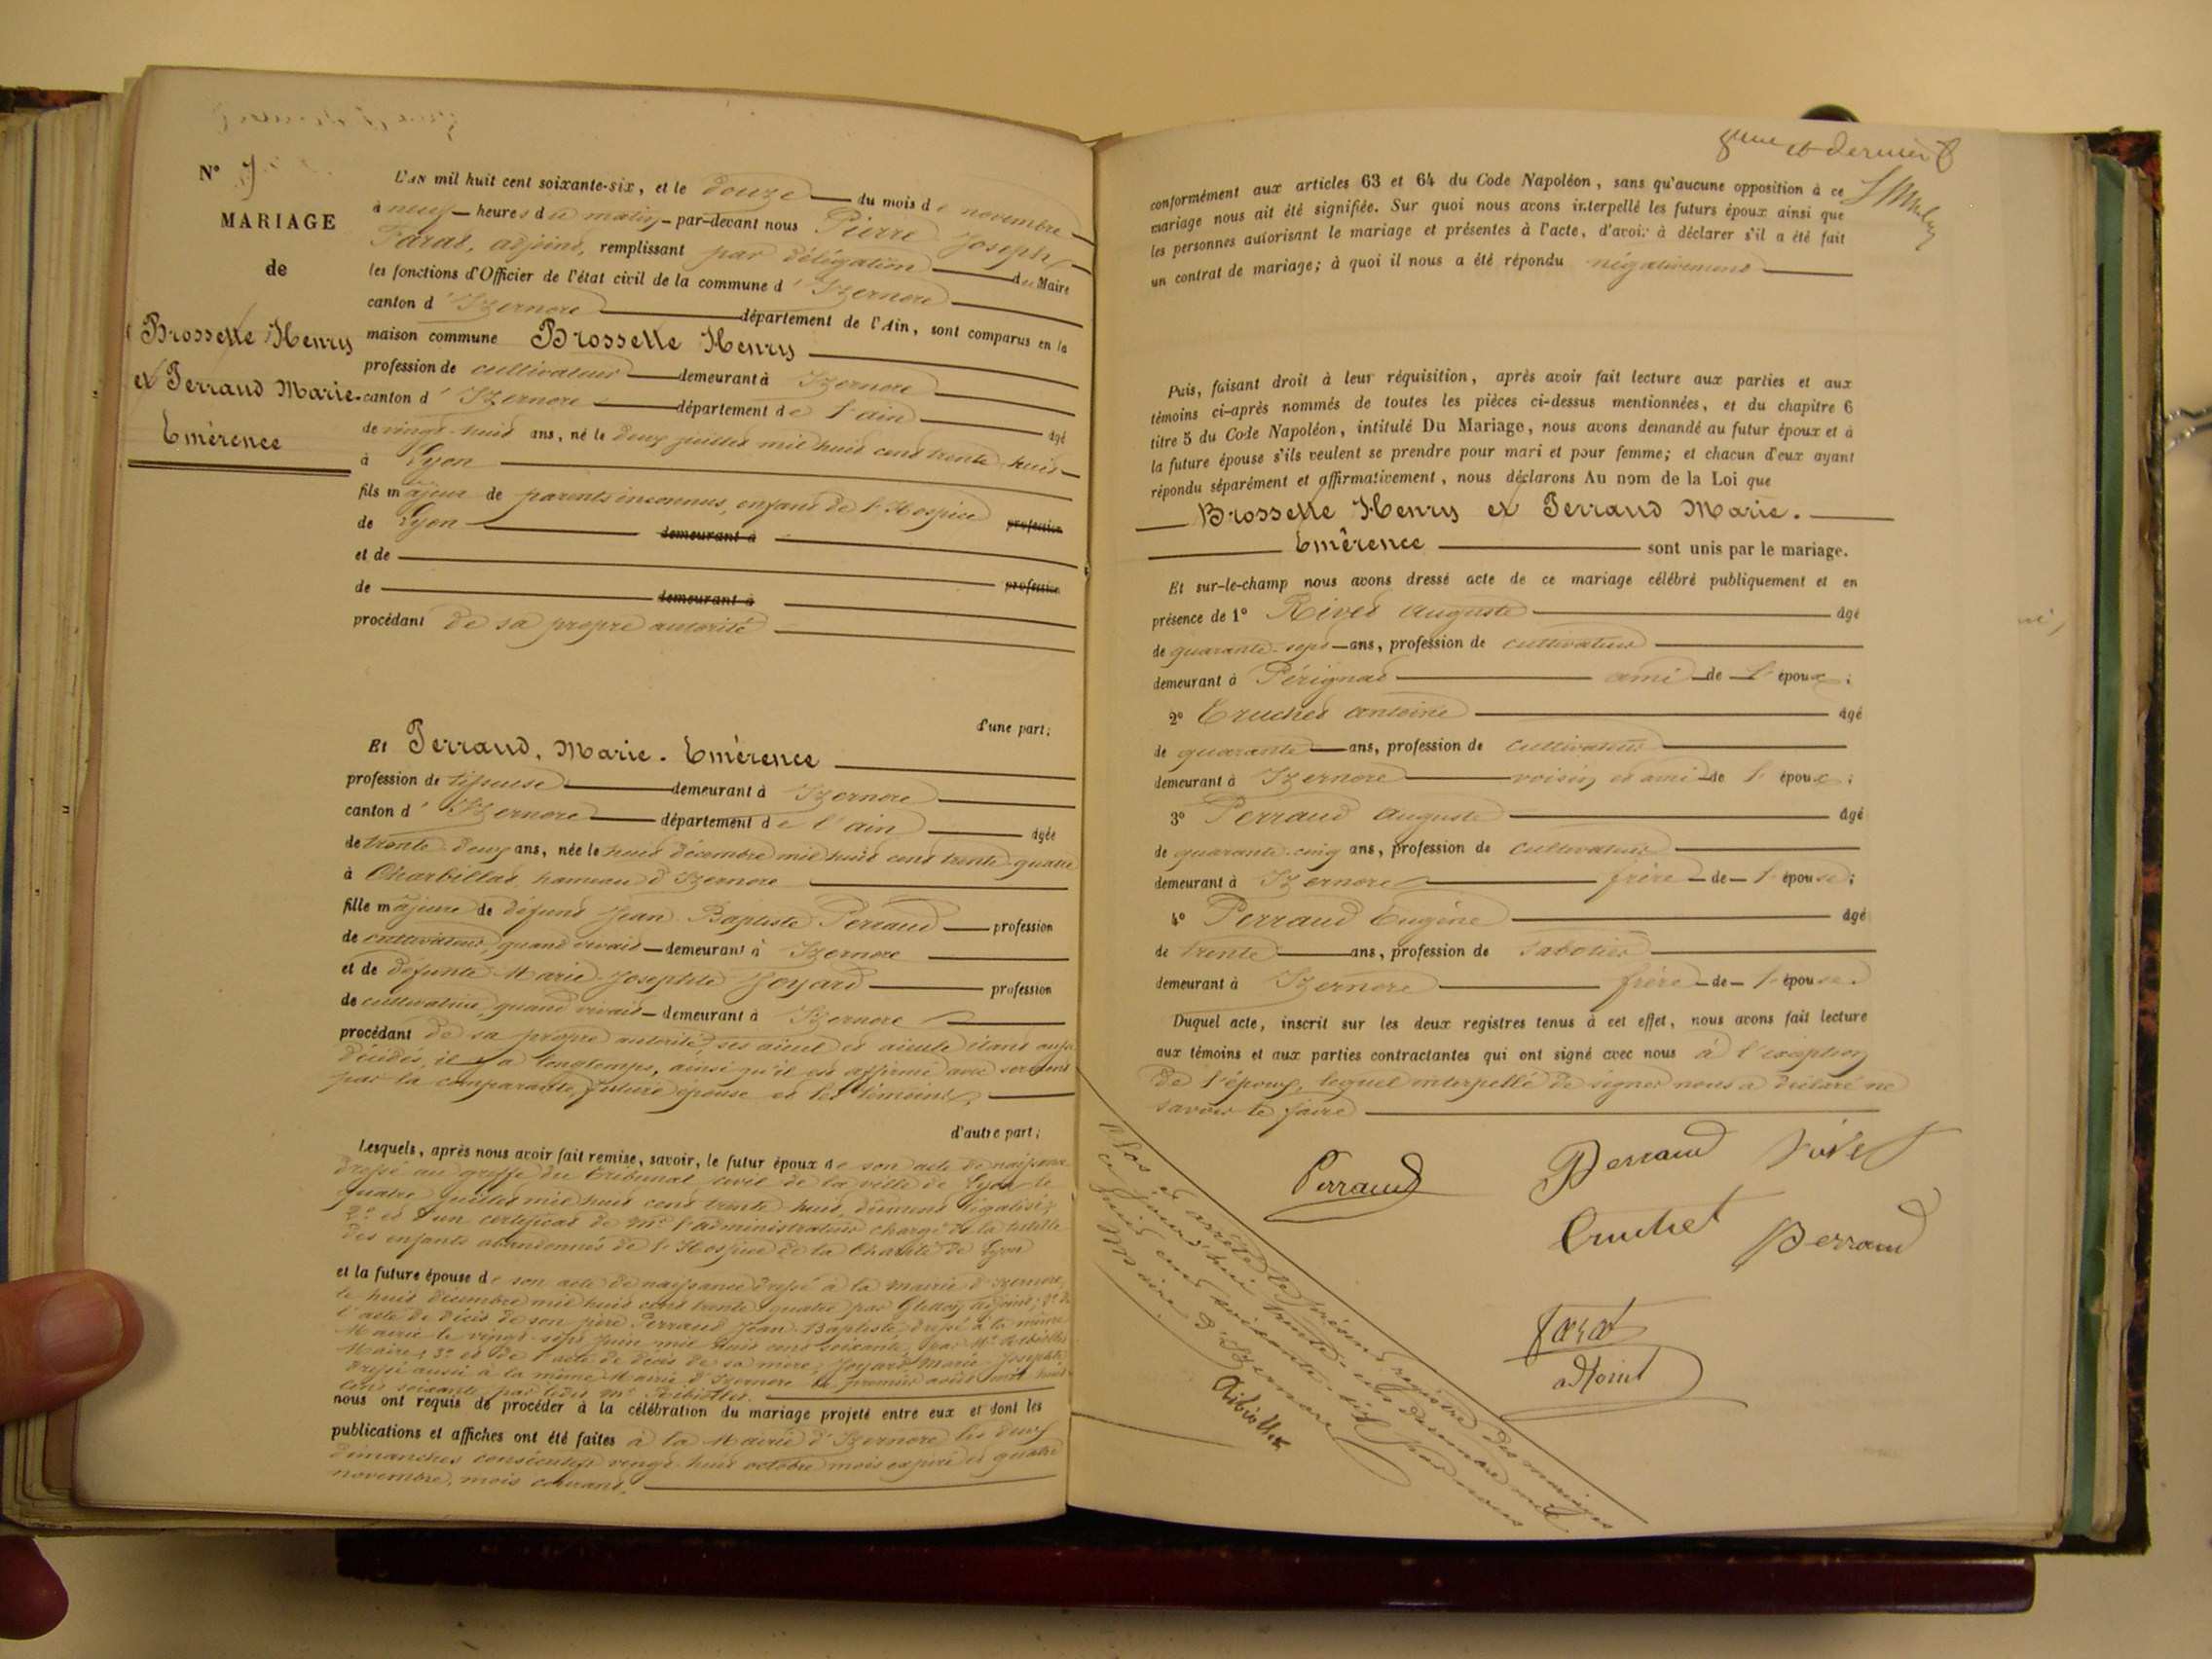 N° 7
MARIAGE
de
Brosselle Henry
et Perraud Marie-
Emérence
L'AN mil huit cent soixante-six, et le douze du mois de novembre
à neuf heures du matin par-devant nous Pierre Joseph
Farat, adjoint, remplissant par délégation du Maire
les fonctions d'Officier de l'état civil de la commune d'Izernore
canton d'Izernore département de l'Ain, sont comparus en la
maison commune Brosselle Henry
profession de cultivateur demeurant à Izernore
canton d'Izernore département de l'ain âgé
de vingt-huit ans, né le deux juillet mil huit cent trente-huit
à Lyon
fils majeur de parents inconnus, enfant de l'Hospice profession
de Lyon demeurant à
et de profession
de demeurant à
procédant de sa propre autorité
d'une part;
Et Perraud, Marie-Emérence
profession de tisseuse demeurant à Izernore
canton d'Izernore département de l'ain âgée
de trente-deux ans, née le huit décembre mil huit cent trente-quatre
à Charbillat, hameau d'Izernore
fille majeure de défunt Jean Baptiste Perraud profession
de cultivateur, quand vivait demeurant à Izernore
et de défunte Marie Josephte Joyard profession
de cultivatrice, quand vivait demeurant à Izernore
procédant de sa propre autorité, ses aïeul et aïeule étant aussi
décédés, il y a longtemps, ainsi qu'il est affirmé avec serment
par la comparante, future épouse et les témoins,
d'autre part;
Lesquels, après nous avoir fait remise, savoir, le futur époux de son acte de naissance
dressé au greffe du Tribunal civil de la ville de Lyon le
quatre juillet mil huit cent trente-huit, dûment légalisé;
2° et d'un certificat de Mr l'administrateur chargé de la tutelle
des enfants abandonnés de l'Hospice de la Charité de Lyon
et la future épouse de son acte de naissance dressé à la Mairie d'Izernore,
le huit décembre mil huit cent trente-quatre par adjoint; 2° de
l'acte de décès de son père Perraud Jean-Baptiste, dressé à la même
Mairie le vingt-sept juin mil huit cent soixante, par Mr
Maire; 3° et de l'acte de décès de sa mère, Joyard Marie-Josephte
dressé aussi à la même Mairie d'Izernore le premier août mil huit
cent soixante par ledit Mr
nous ont requis de procéder à la célébration du mariage projeté entre eux et dont les
publications et affiches ont été faites à la Mairie d'Izernore les deux
dimanches consécutifs vingt-huit octobre mois expiré et quatre
novembre, mois courant.
8eme et dernier
conformément aux articles 63 et 64 du Code Napoléon, sans qu'aucune opposition à ce
mariage nous ait été signifiée. Sur quoi nous avons interpellé les futurs époux ainsi que
les personnes autorisant le mariage et présentes à l'acte, d'avoir à déclarer s'il a été fait
un contrat de mariage; à quoi il nous a été répondu négativement
Puis, faisant droit à leur réquisition, après avoir fait lecture aux parties et aux
témoins ci-après nommés de toutes les pièces ci-dessus mentionnées, et du chapitre 6
titre 5 du Code Napoléon, intitulé Du Mariage, nous avons demandé au futur époux et à
la future épouse s'ils veulent se prendre pour mari et pour femme; et chacun d'eux ayant
répondu séparément et affirmativement, nous déclarons Au nom de la Loi que
Brosselle Henry et Perraud Marie-
Emérence sont unis par le mariage.
Et sur-le-champ nous avons dressé acte de ce mariage célébré publiquement et en
présence de 1° Rivet Auguste âgé
de quarante-sept ans, profession de cultivateur
demeurant à Pérignat ami de l'époux;
2° Cruchet antoine âgé
de quarante ans, profession de cultivateur
demeurant à Izernore voisin et ami de l'époux;
3° Perraud Auguste âgé
de quarante-cinq ans, profession de cultivateur
demeurant à Izernore frère de l'épouse;
4° Perraud Eugène âgé
de trente ans, profession de sabotier
demeurant à Izernore frère de l'épouse.
Duquel acte, inscrit sur les deux registres tenus à cet effet, nous avons fait lecture
aux témoins et aux parties contractantes qui ont signé avec nous à l'exception
de l'époux, lequel interpellé de signer nous a déclaré ne
savoir le faire
Perraud Perraud rivet
Cruchet Perraud
farat
adjoint
Clos et arrêté le présent registre des mariages
ce jourd'hui trente-un décembre mil
huit cent soixante-six par nous
Maire d'Izernore